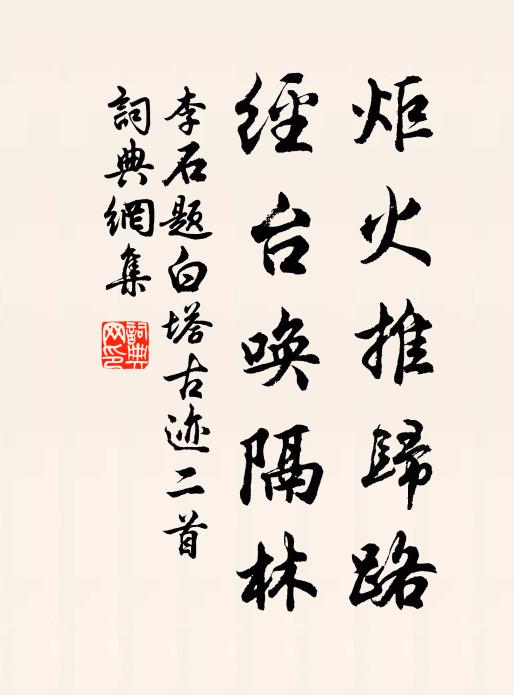 炬火推歸路
經台唤隔林
李石题白塔古迹二首
詞典網集
詞典網印